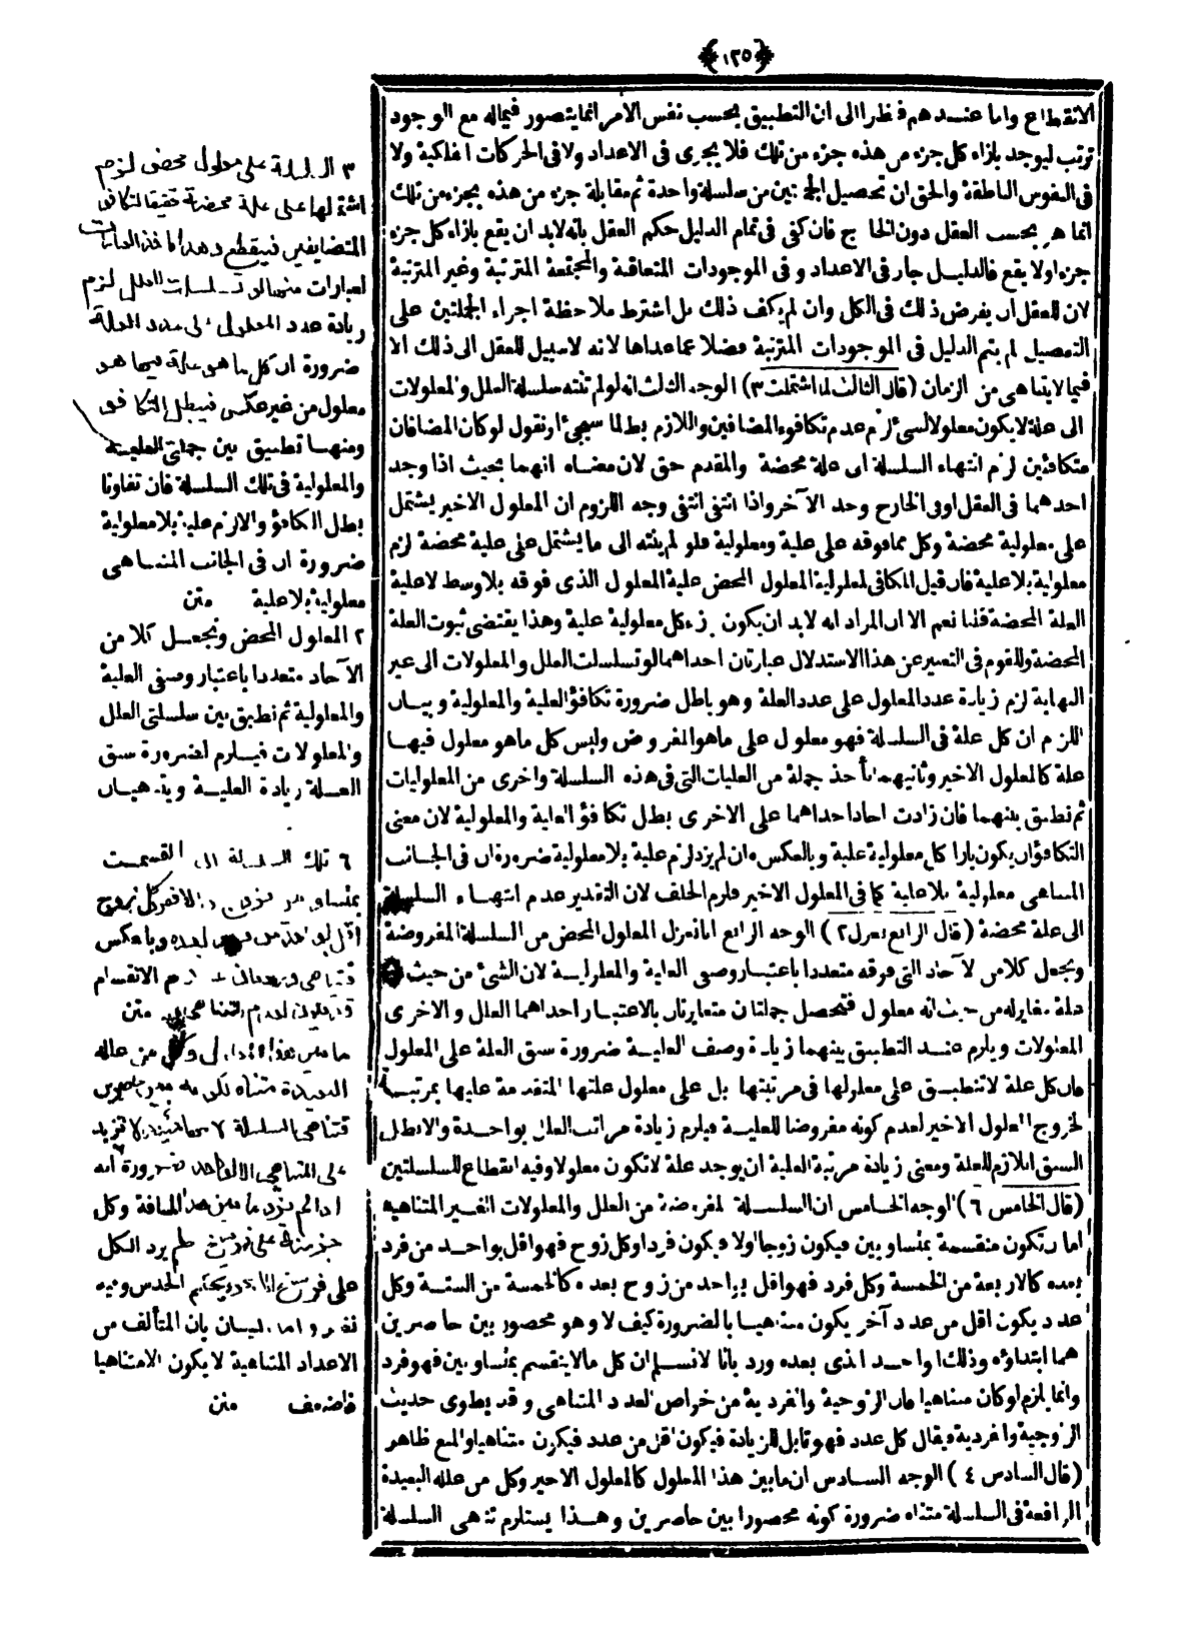 ﴿١٢٥﴾
الانقطاع واما عندهم فنظرا الى ان التطبيق بحسب نفس الامر انما يتصور فيما له مع الوجود
ترتب ليوجد بازاء كل جزء من هذه جزء من تلك فلا يجرى فى الاعداد ولا فى الحركات الفلكية ولا
فى النفوس الناطقة والحق ان تحصيل الجملتين من سلسلة واحدة ثم مقابلة جزء من هذه بجزء من تلك
انما هو بحسب العقل دون الخارج فان كفى فى تمام الدليل حكم العقل بانه لابد ان يقع بازاء كل جزء
جزء اولا يقع فالدليل جار فى الاعداد وفى الموجودات المتعاقبة والمجتمعة المترتبة وغير المترتبة
لان للعقل ان يفرض ذلك فى الكل وان لم يكف ذلك بل اشترط ملاحظة اجزاء الجملتين على
التفصيل لم يتم الدليل فى الموجودات المترتبة فضلا عما عداها لانه لا سبيل للعقل الى ذلك الا
فيما لا يتناهى من الزمان (قال الثالث لما اشتملت ٣) الوجه الثالث انه لو لم تنته سلسلة العلل والمعلولات
الى علة لا يكون معلولا لشئ لزم عدم تكافوء المتضايفين واللازم بط لما سيجئ او نقول لو كان المتضايفان
متكافئين لزم انتهاء السلسلة الى علة محضة والمقدم حق لان معناه انهما بحيث اذا وجد
احدهما فى العقل او فى الخارج وجد الآخر واذا انتفى انتفى وجه اللزوم ان المعلول الاخير يشتمل
على معلولية محضة وكل مما فوقه على علية ومعلولية فلو لم ينته الى ما يشتمل على علية محضة لزم
معلولية بلا علية فان قيل المكافى لمعلولية المعلول المحض علية المعلول الذى فوقه بلا وسط لا علية
العلة المحضة قلنا نعم الا ان المراد انه لابد ان يكون بازاء كل معلولية علية وهذا يقتضى ثبوت العلة
المحضة وللقوم فى التعبير عن هذا الاستدلال عبارتان احداهما لو تسلسلت العلل والمعلولات الى غير
النهاية لزم زيادة عدد المعلول على عدد العلة وهو باطل ضرورة تكافؤ العلية والمعلولية وبيان
اللزوم ان كل علة فى السلسلة فهو معلول على ماهو المفروض وليس كل ماهو معلول فيها
علة كالمعلول الاخير وثانيهما نأخذ جملة من العليات التى فى هذه السلسلة واخرى من المعلوليات
ثم نطبق بينهما فان زادت احاد احداهما على الاخرى بطل تكافؤ العلية والمعلولية لان معنى
التكافؤ ان يكون بازاء كل معلولية علية وبالعكس وان لم يزد لزم علية بلا معلولية ضرورة ان فى الجانب
المتناهى معلولية بلا علية كما فى المعلول الاخير فلزم الخلف لان التقدير عدم انتهاء السلسلة
الى علة محضة (قال الرابع نعزل ٢) الوجه الرابع انا نعزل المعلول المحض من السلسلة المفروضة
ونجعل كلا من الآحاد التى فوقه متعددا باعتبار وصفى العلية والمعلولية لان الشئ من حيث انه
علة مغاير له من حيث انه معلول فتحصل جملتان متغايرتان بالاعتبار احداهما العلل والاخرى
المعلولات ويلزم عند التطبيق بينهما زيادة وصف العلية ضرورة سبق العلة على المعلول
فان كل علة لا تنطبق على معلولها فى مرتبتها بل على معلول علتها المتقدمة عليها بمرتبة
لخروج المعلول الاخير لعدم كونه مفروضا للعلية فيلزم زيادة مراتب العلل بواحدة والا بطل
السبق اللازم للعلة ومعنى زيادة مرتبة العلية ان يوجد علة لا تكون معلولا وفيه انقطاع للسلسلتين
(قال الخامس ٦) الوجه الخامس ان السلسلة المفروضة من العلل والمعلولات الغير المتناهيه
اما ان تكون منقسمة بمتساويين فيكون زوجا اولا فيكون فردا وكل زوج فهو اقل بواحد من فرد
بعده كالاربعة من الخمسة وكل فرد فهو اقل بواحد من زوج بعده كالخمسة من الستة وكل
عدد يكون اقل من عدد آخر يكون متناهيا بالضرورة كيف لا وهو محصور بين حاصرين
هما ابتداؤه وذلك الواحد الذى بعده ورد بانا لا نسلم ان كل ما لا ينقسم بمتساويين فهو فرد
وانما يلزم لو كان متناهيا فان الزوجية والفردية من خواص العدد المتناهى وقد يطوى حديث
الزوجية والفردية ويقال كل عدد فهو قابل للزيادة فيكون اقل من عدد فيكون متناهيا والمنع ظاهر
(قال السادس ٤) الوجه السادس ان مابين هذا المعلول كالمعلول الاخير وكل من علله البعيدة
الواقعة فى السلسلة متناه ضرورة كونه محصورا بين حاصرين وهذا يستلزم تناهى السلسلة
٣ السلسلة على معلول محض لزم
اشتمالها على علة محضة تحقيقا لتكافؤ
المتضايفين فينقطع وهذا مأخذ العبارات
لعبارات منها لو تسلسلت العلل لزم
زيادة عدد المعلول على عدد العلة
ضرورة ان كل ماهو علة فيها هو
معلول من غير عكس فيبطل التكافؤ
ومنها تطبيق بين جملتى العلية
والمعلولية فى تلك السلسلة فان تفاوتا
بطل التكافؤ والا لزم علية بلا معلولية
ضرورة ان فى الجانب المتناهى
معلولية بلا علية متن
٢ المعلول المحض ونجعل كلا من
الآحاد متعددا باعتبار وصفى العلية
والمعلولية ثم نطبق بين سلسلتى العلل
والمعلولات فيلزم لضرورة سبق
العلة زيادة العلية ويتناهيان
٦ تلك السلسلة ان انقسمت
بمتساويين فزوج والا ففرد وكل زوج
اقل بواحد من فرد بعده وبالعكس
فتتناهى الانقسام
متن
مابين هذا وكل من علله
البعيدة متناه لكونه بين حاصرين
فتتناهى السلسلة لا تزيد
على المتناهى الا بواحد ضرورة انه
اذا لم يزد ما بين هذا المسافة وكل
جزء منها على فرسخ لم يزد الكل
على فرسخ الحدس وفيه
بيان بان المتألف من
الاعداد المتناهية لا يكون الا متناهيا
فاضعف متن